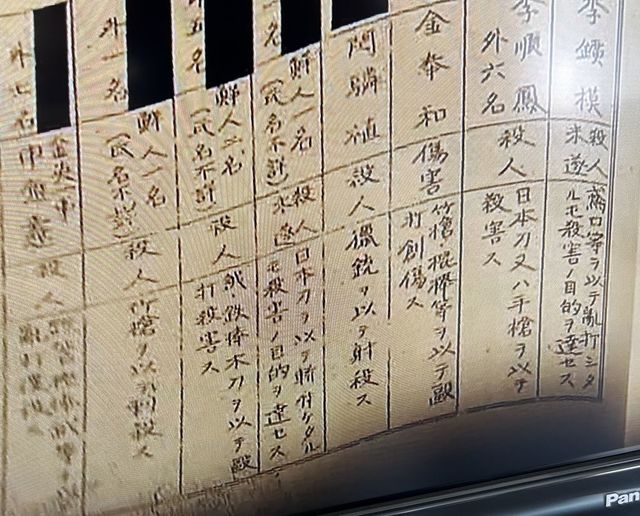 李鑛模
殺人
未遂
鳶口等ヲ以テ亂打シタ
ルモ殺害ノ目的ヲ達セス
李順鳳
外六名
殺人
日本刀又ハ手槍ヲ以テ
殺害ス
金奉和
傷害
竹槍、棍棒等ヲ以テ毆
打創傷ス
閔麟植
殺人
獵銃ヲ以テ射殺ス
一名
鮮人一名
(氏名不詳)
殺人
未遂
日本刀ヲ以テ斬付ケタル
モ殺害ノ目的ヲ達セス
五名
鮮人二名
(氏名不詳)
殺人
鉄棒木刀ヲ以テ毆
打殺害ス
外一名
鮮人一名
(氏名不詳)
殺人
竹槍ヲ以テ刺殺ス
外七名
殺人
Pan